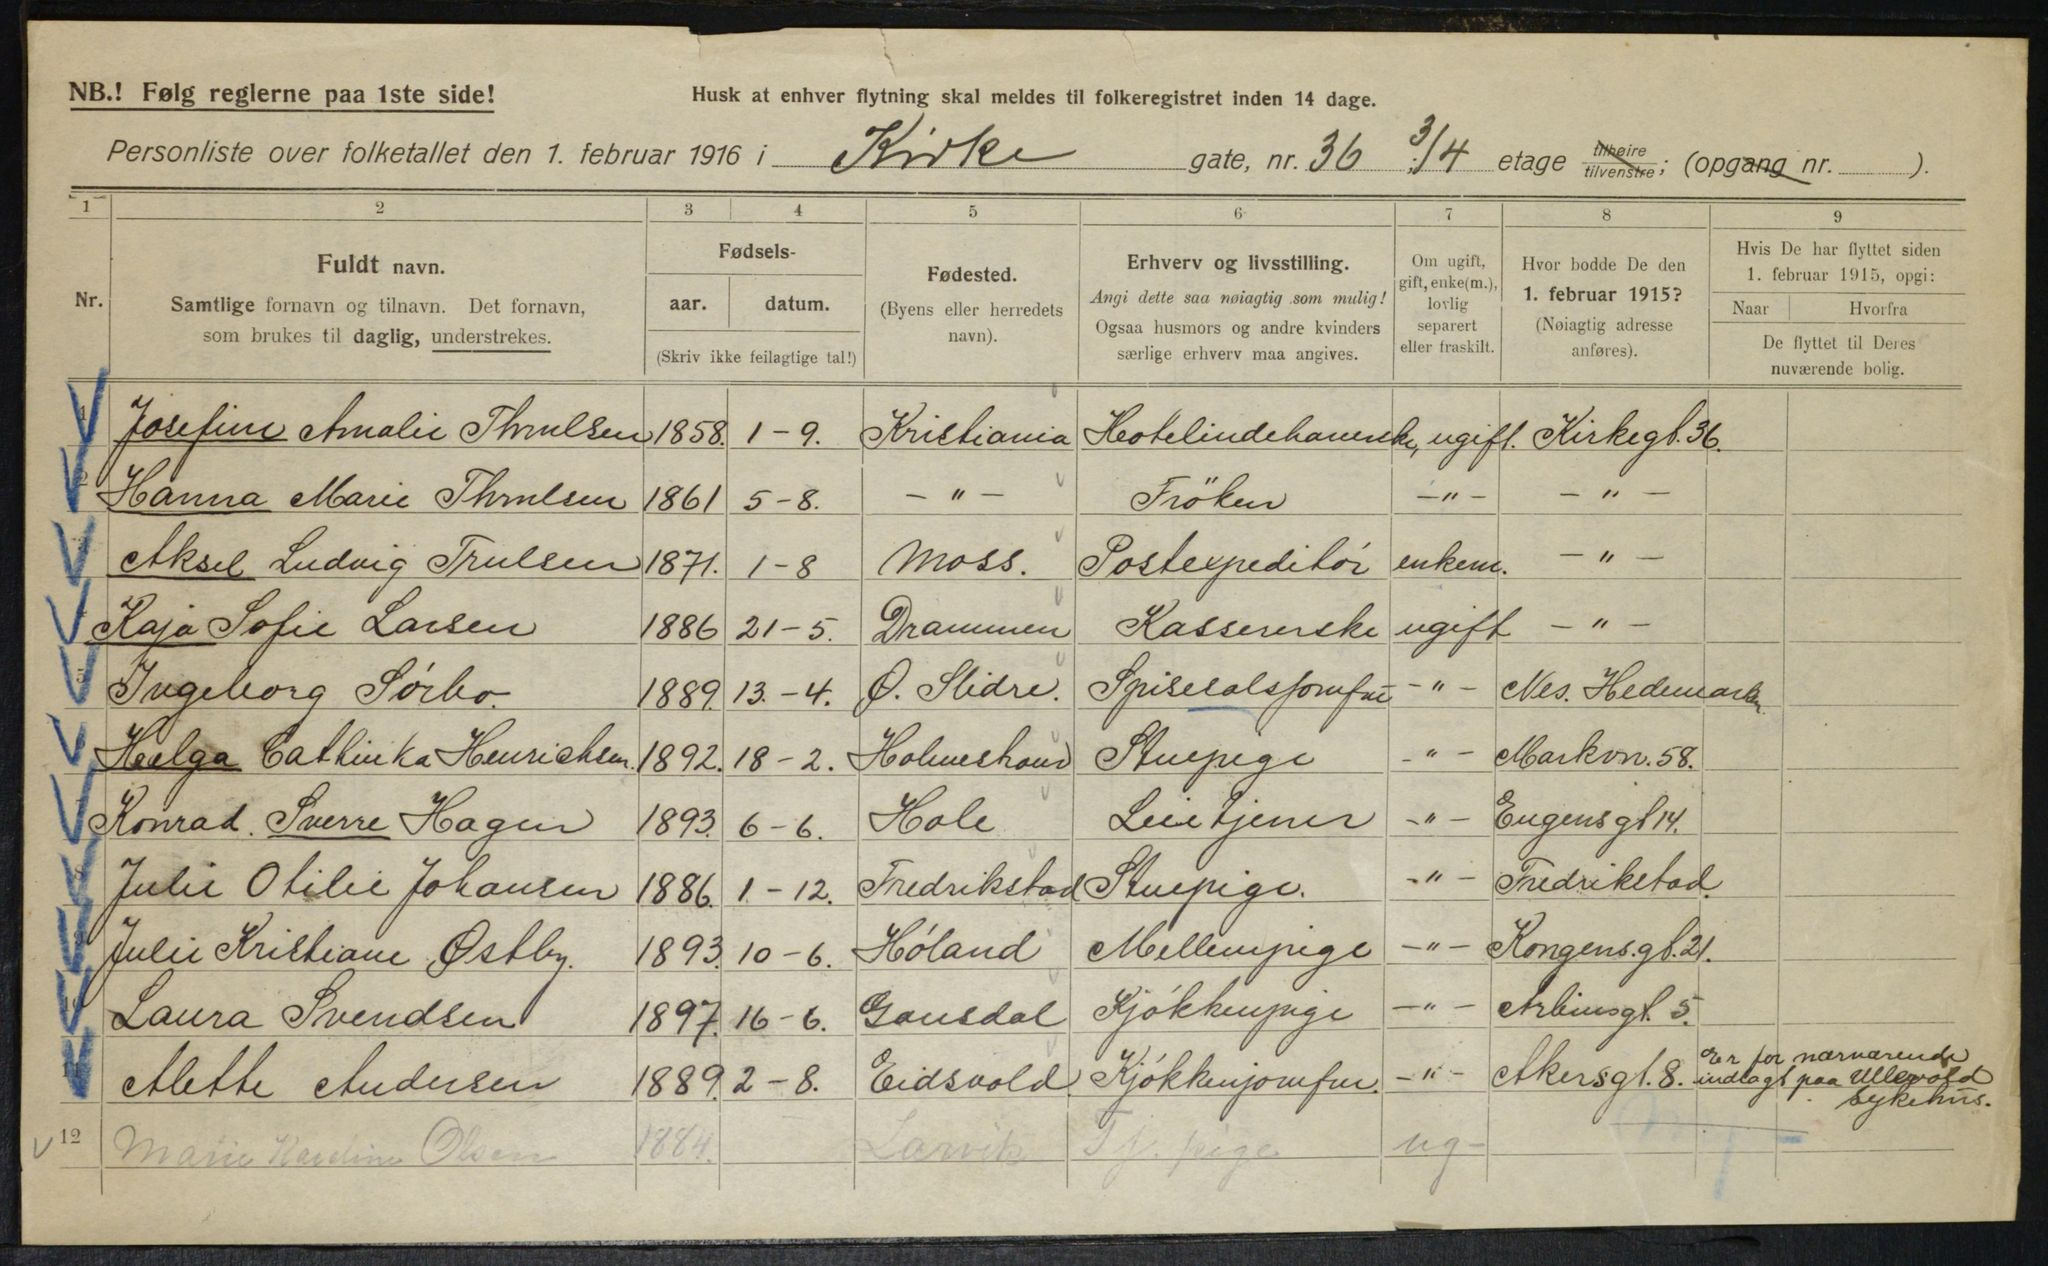 NB.! Følg reglerne paa 1ste side!
Husk at enhver flytning skal meldes til folkeregistret inden 14 dage.
Personliste over folketallet den 1. februar 1916 i Kirke gate, nr. 36 3/4 etage tilhøire tilvenstre; (opgang nr. ).
1 2 3 4 5 6 7 8 9
Nr.
Fuldt navn.
Samtlige fornavn og tilnavn. Det fornavn,
som brukes til daglig, understrekes.
Fødsels-
aar. datum.
(Skriv ikke feilagtige tal!)
Fødested.
(Byens eller herredets
navn).
Erhverv og livsstilling.
Angi dette saa nøiagtig som mulig!
Ogsaa husmors og andre kvinders
særlige erhverv maa angives.
Om ugift,
gift, enke(m.),
lovlig
separert
eller fraskilt.
Hvor bodde De den
1. februar 1915?
(Nøiagtig adresse
anføres).
Hvis De har flyttet siden
1. februar 1915, opgi:
Naar Hvorfra
De flyttet til Deres
nuværende bolig.
Josefine Amalie Thrulsen 1858. 1-9. Kristiania Hotelindehaverske, ugift. Kirkegt. 36.
Hanna Marie Thrulsen 1861 5-8. -"- Fröken -"- -"-
Aksel Ludvig Trulsen 1871. 1-8 Moss. Postexpeditór enkem. -"-
Kaja Sofie Larsen 1886 21-5. Drammen Kassererske ugift -"-
Ingeborg Sórbo. 1889. 13.-4. Ø. Slidre. Spisesalsjomfru -"- Nes. Hedemarken.
Helga Cathinka Henrichsen. 1892. 18-2. Holmestrand Stuepige -"- Markvn. 58.
Konrad. Sverre Hagen 1893. 6-6. Hole Leietjener -"- Eugensgt 14.
Julie Otilie Johansen 1886. 1-12. Fredrikstad Stuepige. -"- Fredrikstad.
Julie Kristiane Østby. 1893. 10-6. Hóland Mellempige -"- Kongens.gt. 21.
Laura Svendsen 1897. 16-6. Gausdal Kjókkenpige -"- Arbinsgt. 5.
Alette Andersen 1889. 2-8. Eidsvold. Kjókkenjomfru. -"- Akersgt. 8. Er for nærværende
indlagt paa Ullevold
sykehus.
12 Marie Karoline Olsen 1884. Larvik Tj. pige ug-